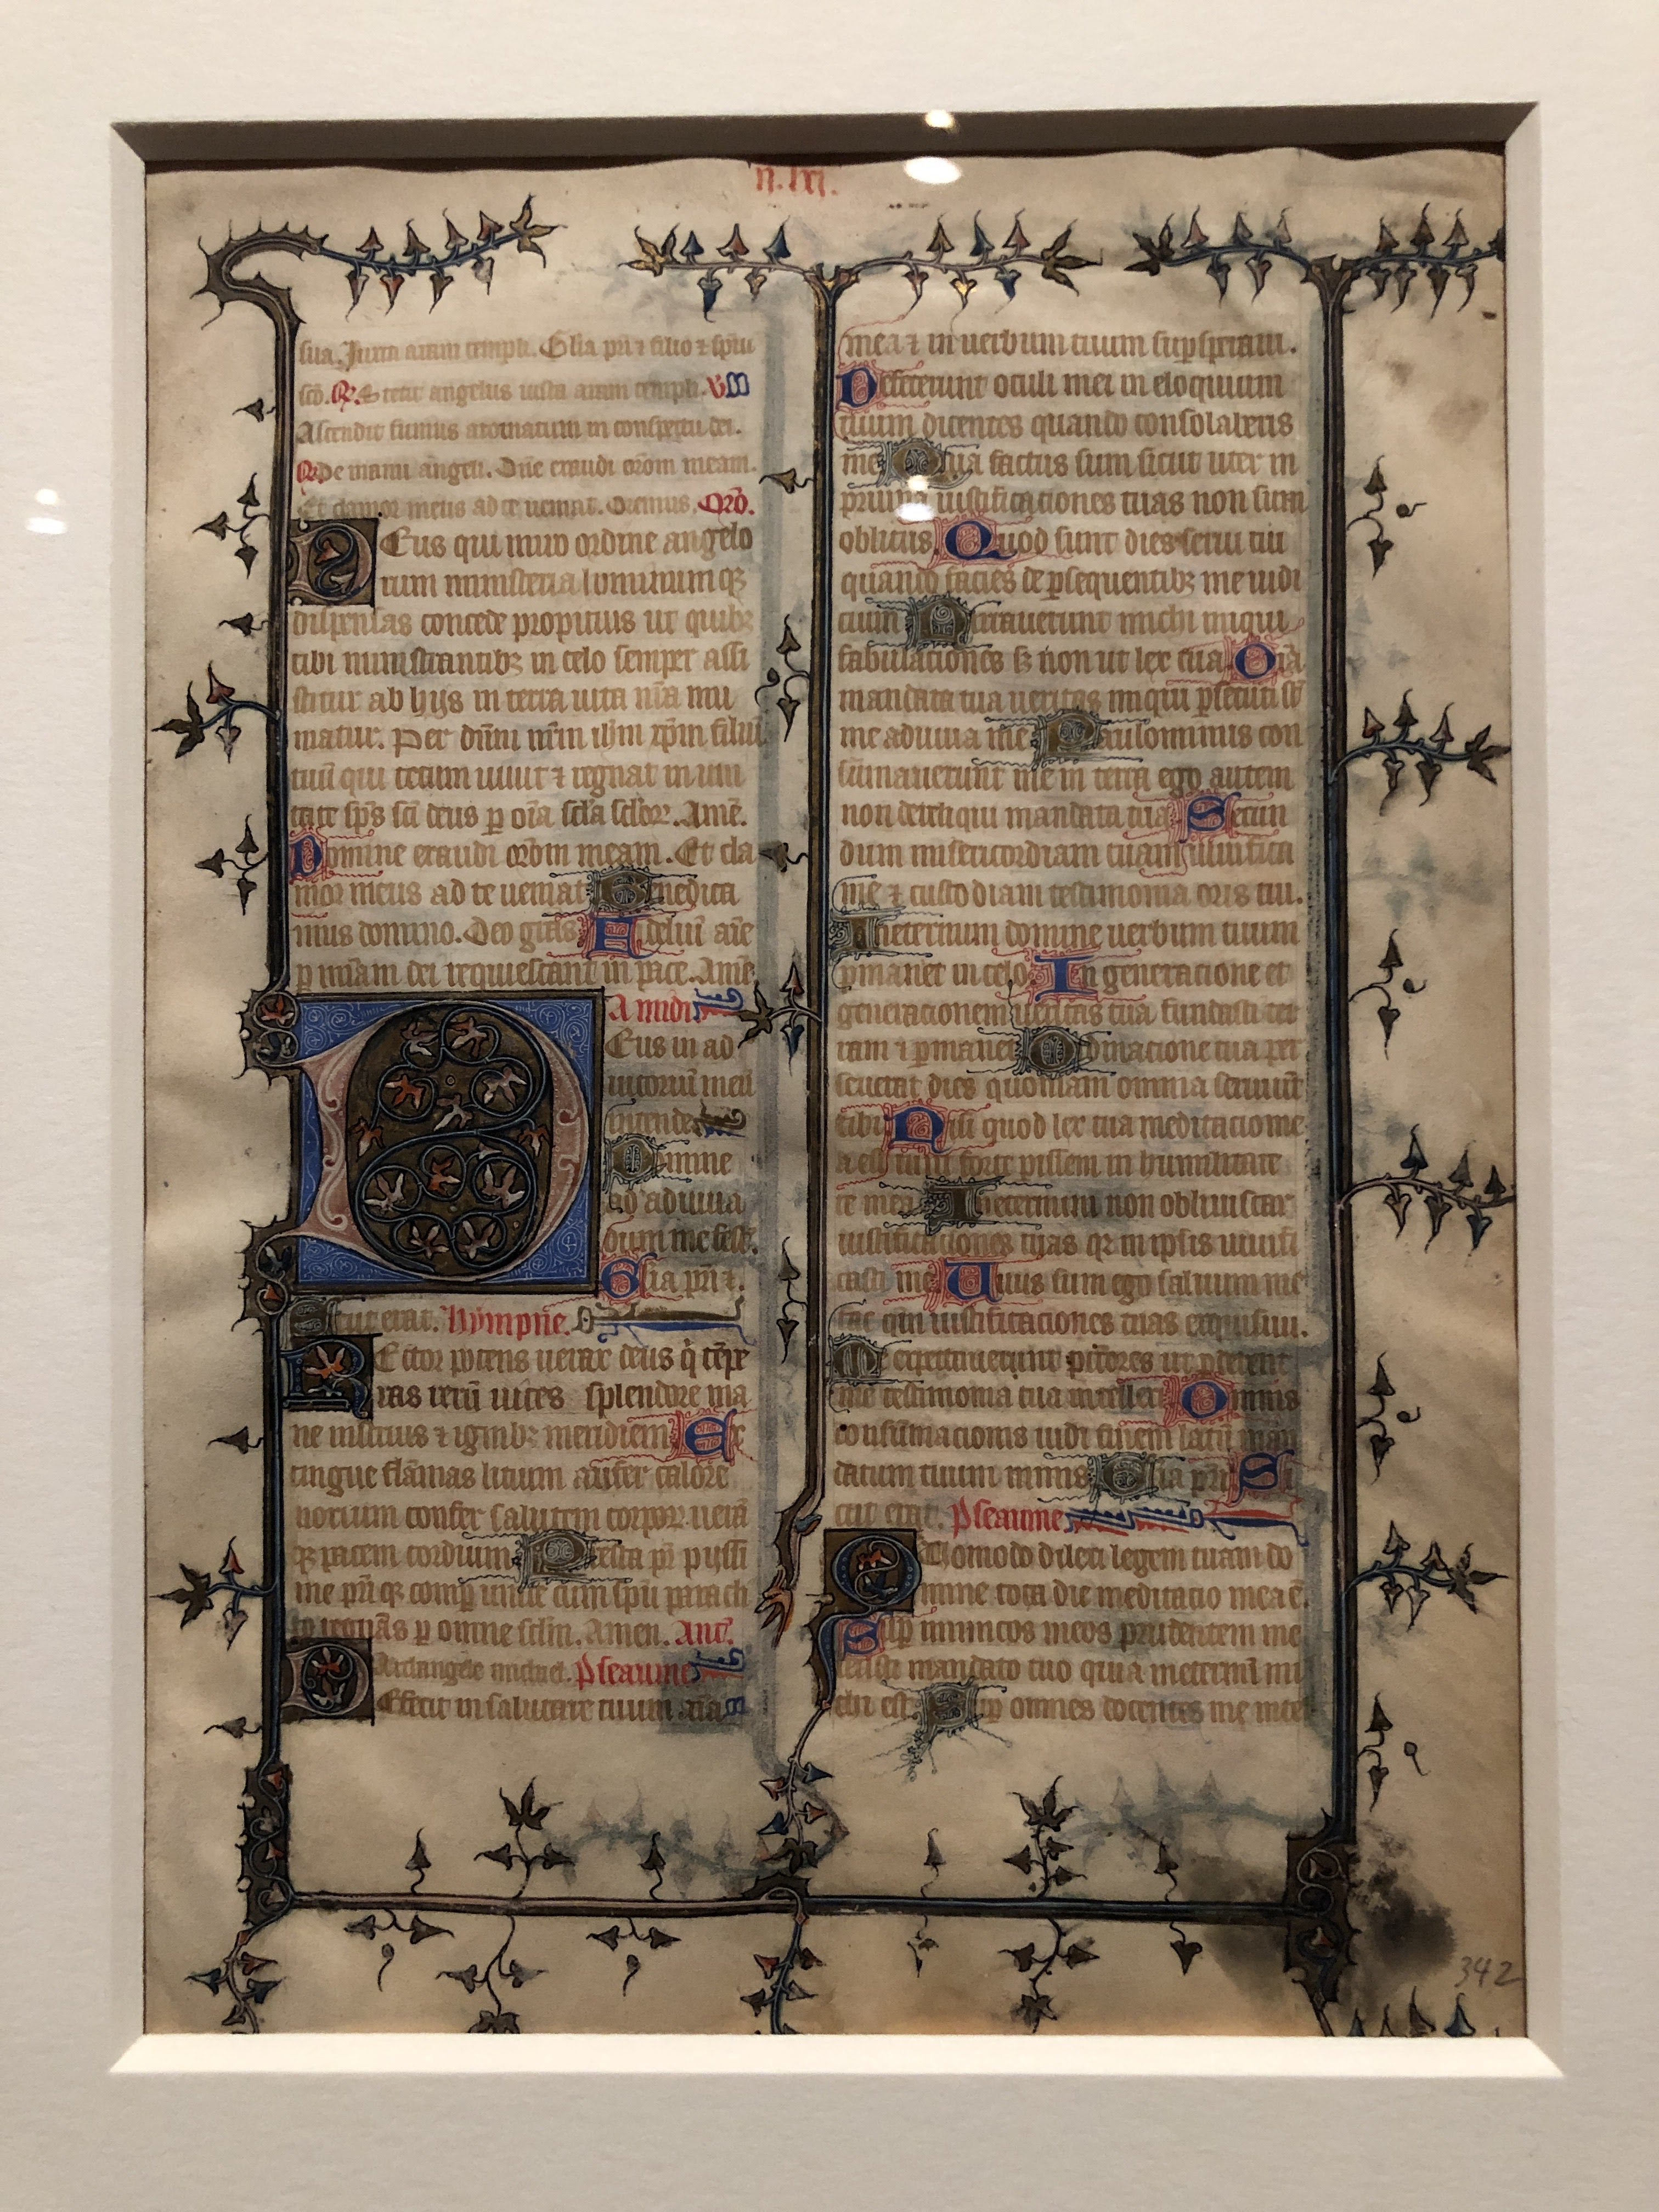 n. lxi.
sua. Juxta aram templi. Glia pri ⁊ filio ⁊ spiu
sco. R. Stetit angelus iuxta aram templi. V
Ascendit fumus aromatum in conspectu dei.
R. De manu angeli. Dne exaudi orom meam.
Et clamor meus ad te ueniat. Oremus. Oro.
Deus qui miro ordine angelo
rum ministeria hominumqꝫ
dispensas concede propitius ut quibꝫ
tibi ministrantibꝫ in celo semper assi
stitur ab hijs in terra uita nra mu
niatur. Per dnm nrm ihm xpm filiu
tuu qui tecum uiuit ⁊ regnat in uni
tate sps sci deus ꝑ oia scla sclor. Ame.
Domine exaudi orom meam. Et cla
mor meus ad te ueniat Benedica
mus domino. Deo gras Fideliu aie
ꝑ miam dei requiescant in pace. Ame
A midi
Deus in ad
iutoriu meu
intende
Domine
ad adiuua
dum me fest.
Glia pri ⁊.
Sicut erat. Hympne.
Rector potens uerax deus q tempe
ras reru uices splendore ma
ne instruis ⁊ ignibꝫ meridiem Ex
tingue flammas litium aufer calore
noxium confer salutem corpoꝝ uera
qꝫ pacem cordium Presta pr pijssi
me priqꝫ compar unice cum spu paracli
to regnas ꝑ omne sclm. Amen. Ant.
Archangele michael. Pseaume
Defecit in salutare tuum aia
mea ⁊ in uerbum tuum supsperaui.
Defecerunt oculi mei in eloquium
tuum dicentes quando consolaberis
me Quia factus sum sicut uter in
pruina iustificaciones tuas non sum
oblitus. Quod sunt dies serui tui
quando facies de ꝑsequentibꝫ me iudi
cium Narrauerunt michi iniqui
fabulaciones sꝫ non ut lex tua. Oia
mandata tua ueritas iniqui ꝑsecuti st
me adiuua me Paulominus con
sumauerunt me in terra ego autem
non dereliqui mandata tua Secun
dum misericordiam tuam uiuifica
me ⁊ custodiam testimonia oris tui.
Ineternum domine uerbum tuum
ꝑmanet in celo In generacione et
generacionem ueritas tua fundasti ter
ram ⁊ ꝑmanet Ordinacione tua per
seuerat dies quoniam omnia seruiut
tibi Nisi quod lex tua meditacio me
a est tunc forte pissem in humilitate
te mea Ineternum non obliuiscar
iustificaciones tuas qꝛ in ipsis uiuifi
casti me Tuus sum ego saluum me
fac qm iustificaciones tuas exquisiui.
Me expectauerunt pctores ut ꝑderent
me testimonia tua intellexi Omnis
consumacionis uidi finem latu man
datum tuum nimis Glia pri Si
cut erat. Pseaume
Quomodo dilexi legem tuam do
mine tota die meditacio mea e.
Sup inimicos meos prudentem me
fecisti mandato tuo quia ineternu mi
chi est Sup omnes docentes me inte
342